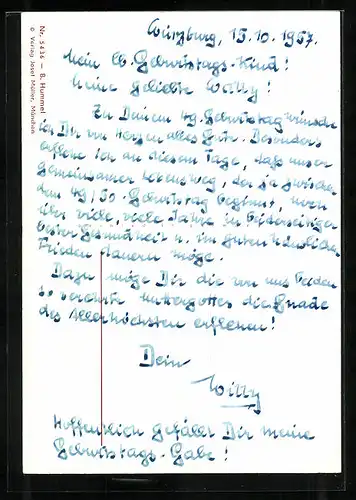 Würzburg, 15.10.1957.
Mein lb. Geburtstags-Kind!
Meine geliebte Willy!
Zu Deinem 49. Geburtstag wünsche
ich Dir von Herzen alles Gute. Besonders
erflehe ich an diesem Tage, daß unser
gemeinsamer Lebensweg, der ja zwischen
dem 49/50. Geburtstag beginnt, noch
über viele, viele Jahre in beiderseitiger
bester Gesundheit u. im guten häuslichen
Frieden dauern möge.
Dazu möge Dir die von uns beiden
so verehrte Muttergottes die Gnade
des Allerhöchsten erflehen!
Dein
Willy
Hoffentlich gefällt Dir meine
Geburtstags-Gabe!
Nr. 5436 - B. Hummel
© Verlag Josef Müller, München